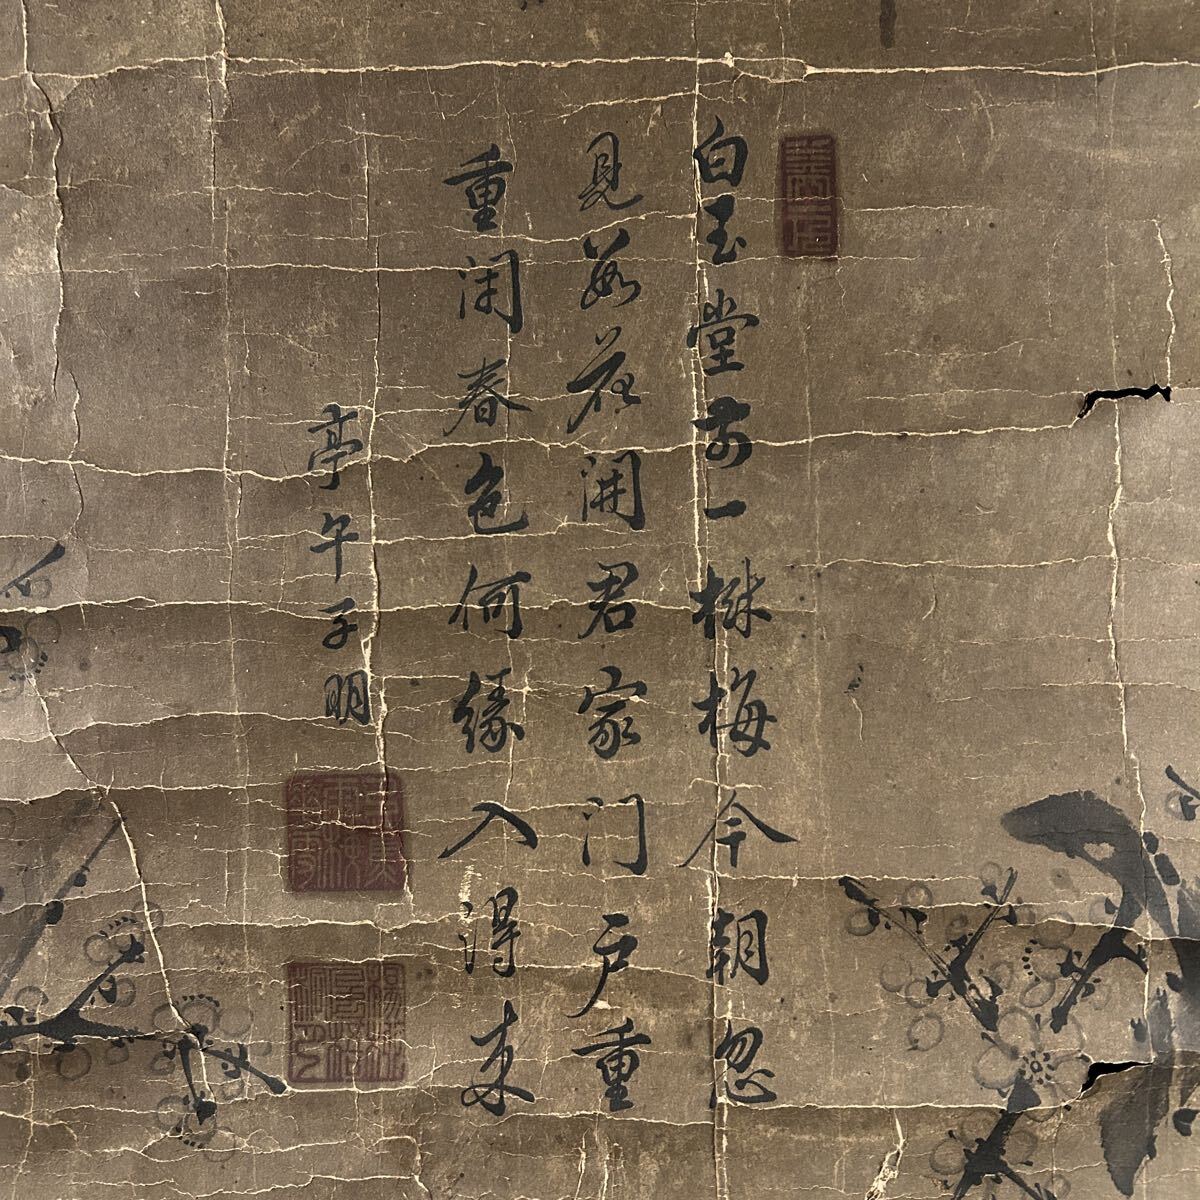 白玉堂前一樹梅今朝忽
見數花開君家门户重
重閉春色何緣入得来
亭午子明